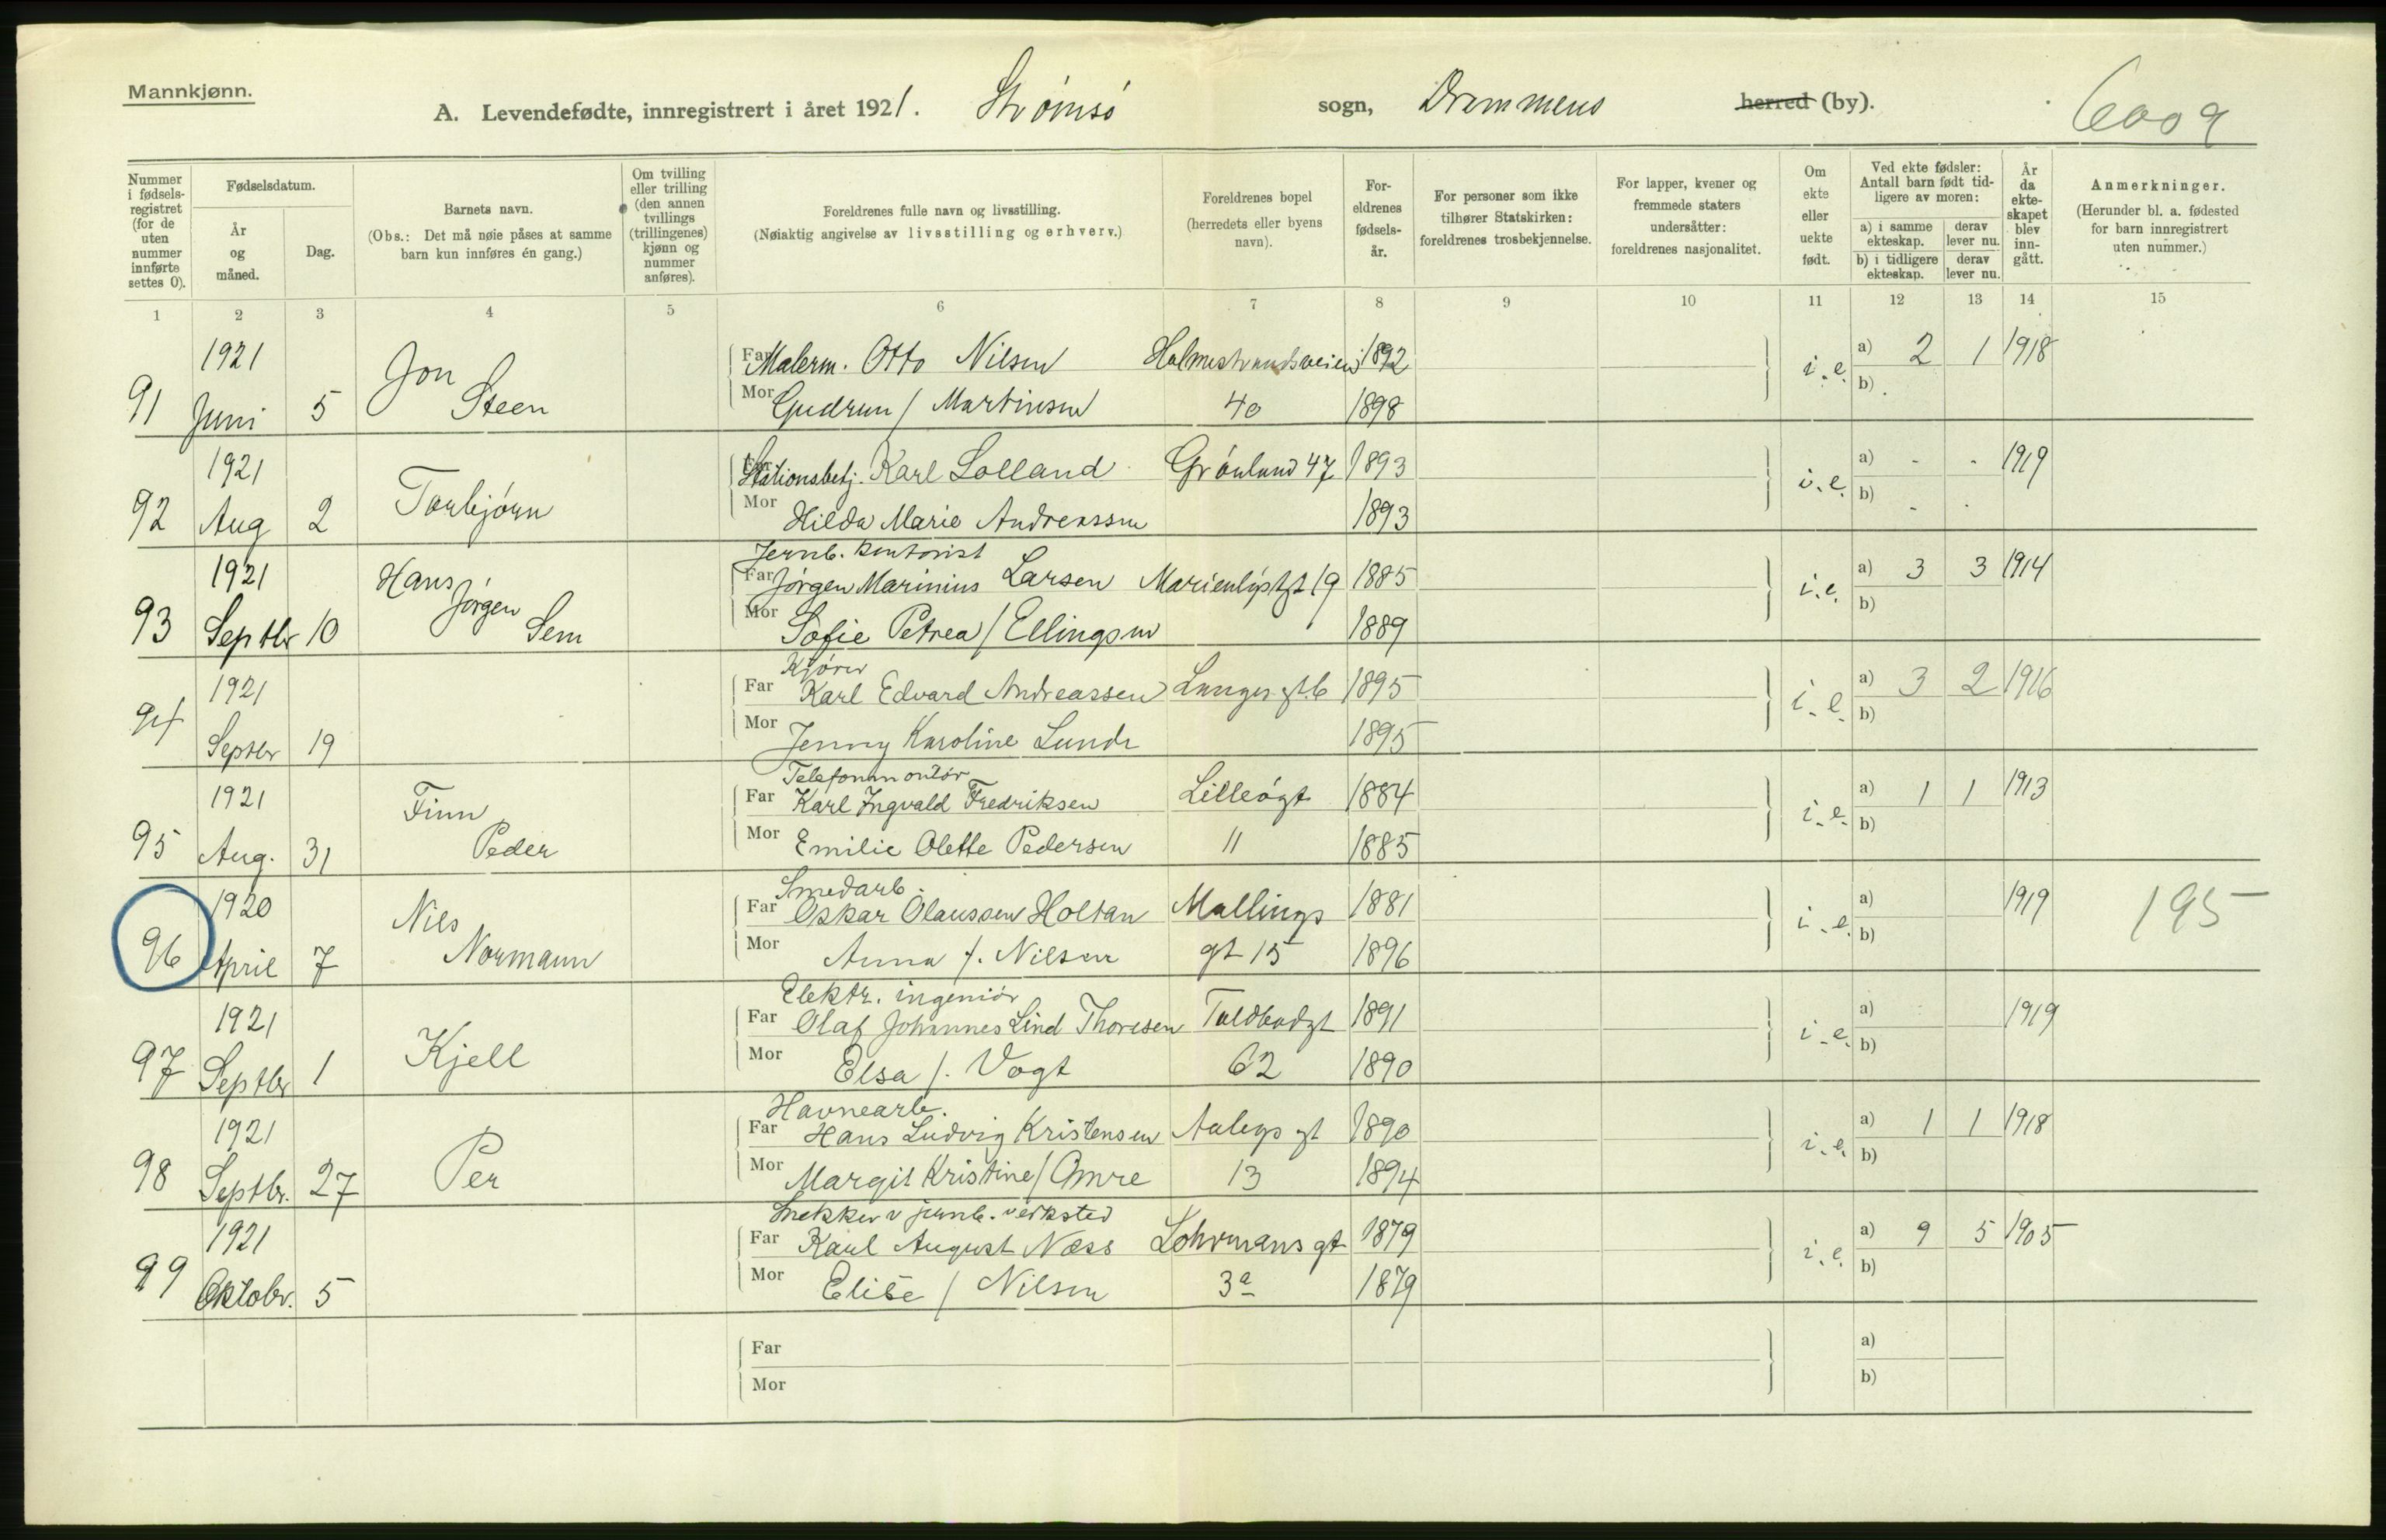 Mannkjønn.
A. Levendefødte, innregistrert i året 1921. Strømsø sogn, Drammens herred (by). 6009
Nummer i fødsels-registret (for de uten nummer innførte settes 0).
Fødselsdatum.
År og måned.
Dag.
Barnets navn.
(Obs.: Det må nøie påses at samme barn kun innføres én gang.)
Om tvilling eller trilling (den annen tvillings (trillingenes) kjønn og nummer anføres).
Foreldrenes fulle navn og livsstilling.
(Nøiaktig angivelse av livsstilling og erhverv.)
Foreldrenes bopel
(herredets eller byens navn).
For-eldrenes fødsels-år.
For personer som ikke tilhører Statskirken: foreldrenes trosbekjennelse.
For lapper, kvener og fremmede staters undersåtter: foreldrenes nasjonalitet.
Om ekte eller uekte født.
Ved ekte fødsler: Antall barn født tid-ligere av moren:
a) i samme ekteskap. derav lever nu.
b) i tidligere ekteskap. derav lever nu.
År da ekte-skapet blev inn-gått.
Anmerkninger.
(Herunder bl. a. fødested for barn innregistrert uten nummer.)
1 2 3 4 5 6 7 8 9 10 11 12 13 14 15
1921 Jon Far Malerm. Otto Nilsen Holmestrandsveien 1892 i.e. a) 2 1 1918
91 Juni 5 Steen Mor Gudrun / Martinsen 40 1898 b)
1921 Far Stationsbetj. Karl Solland Grønland 47 1893 i.e. a) - - 1919
92 Aug 2 Torbjørn Mor Hilda Marie Andreassen 1893 b) - -
Jernb. kontorist
1921 Hans Far Jørgen Marinius Larsen Marienlystgt 19 1885 i.e. a) 3 3 1914
93 Septbr 10 Jørgen Sem Mor Sofie Petrea / Ellingsen 1889 b)
Kjører
1921 Far Karl Edvard Andreassen Langes gt 6 1895 i.e. a) 3 2 1916
94 Septbr 19 Mor Jenny Karoline Lunde 1895 b)
Telefonmontør
1921 Finn Far Karl Ingvald Fredriksen Lilleøgt 1884 i.e. a) 1 1 1913
95 Aug. 31 Peder Mor Emilie Olette Pedersen 11 1885 b)
Smedarb.
1920 Nils Far Oskar Olaussen Holtan Mallings 1881 i.e. a) 1919 195
96 April 7 Normann Mor Anna f. Nilsen gt 15 1896 b)
Elektr. ingeniør
1921 Far Olaf Johannes Lind Thoresen Toldbodgt 1891 i.e. a) 1919
97 Septbr 1 Kjell Mor Elsa f. Vogt 62 1890 b)
Havnearb.
1921 Far Hans Ludvig Kristensen gt 1890 i.e. a) 1 1 1918
98 Septbr. 27 Per Mor Margit Kristine / Omre 13 1894 b)
Snekker v jernb. verksted
1921 Far Karl August Næss Lohrmans gt 1879 i.e. a) 9 5 1905
99 Oktobr. 5 Mor Elise / Nilsen 3a 1879 b)
Far a)
Mor b)